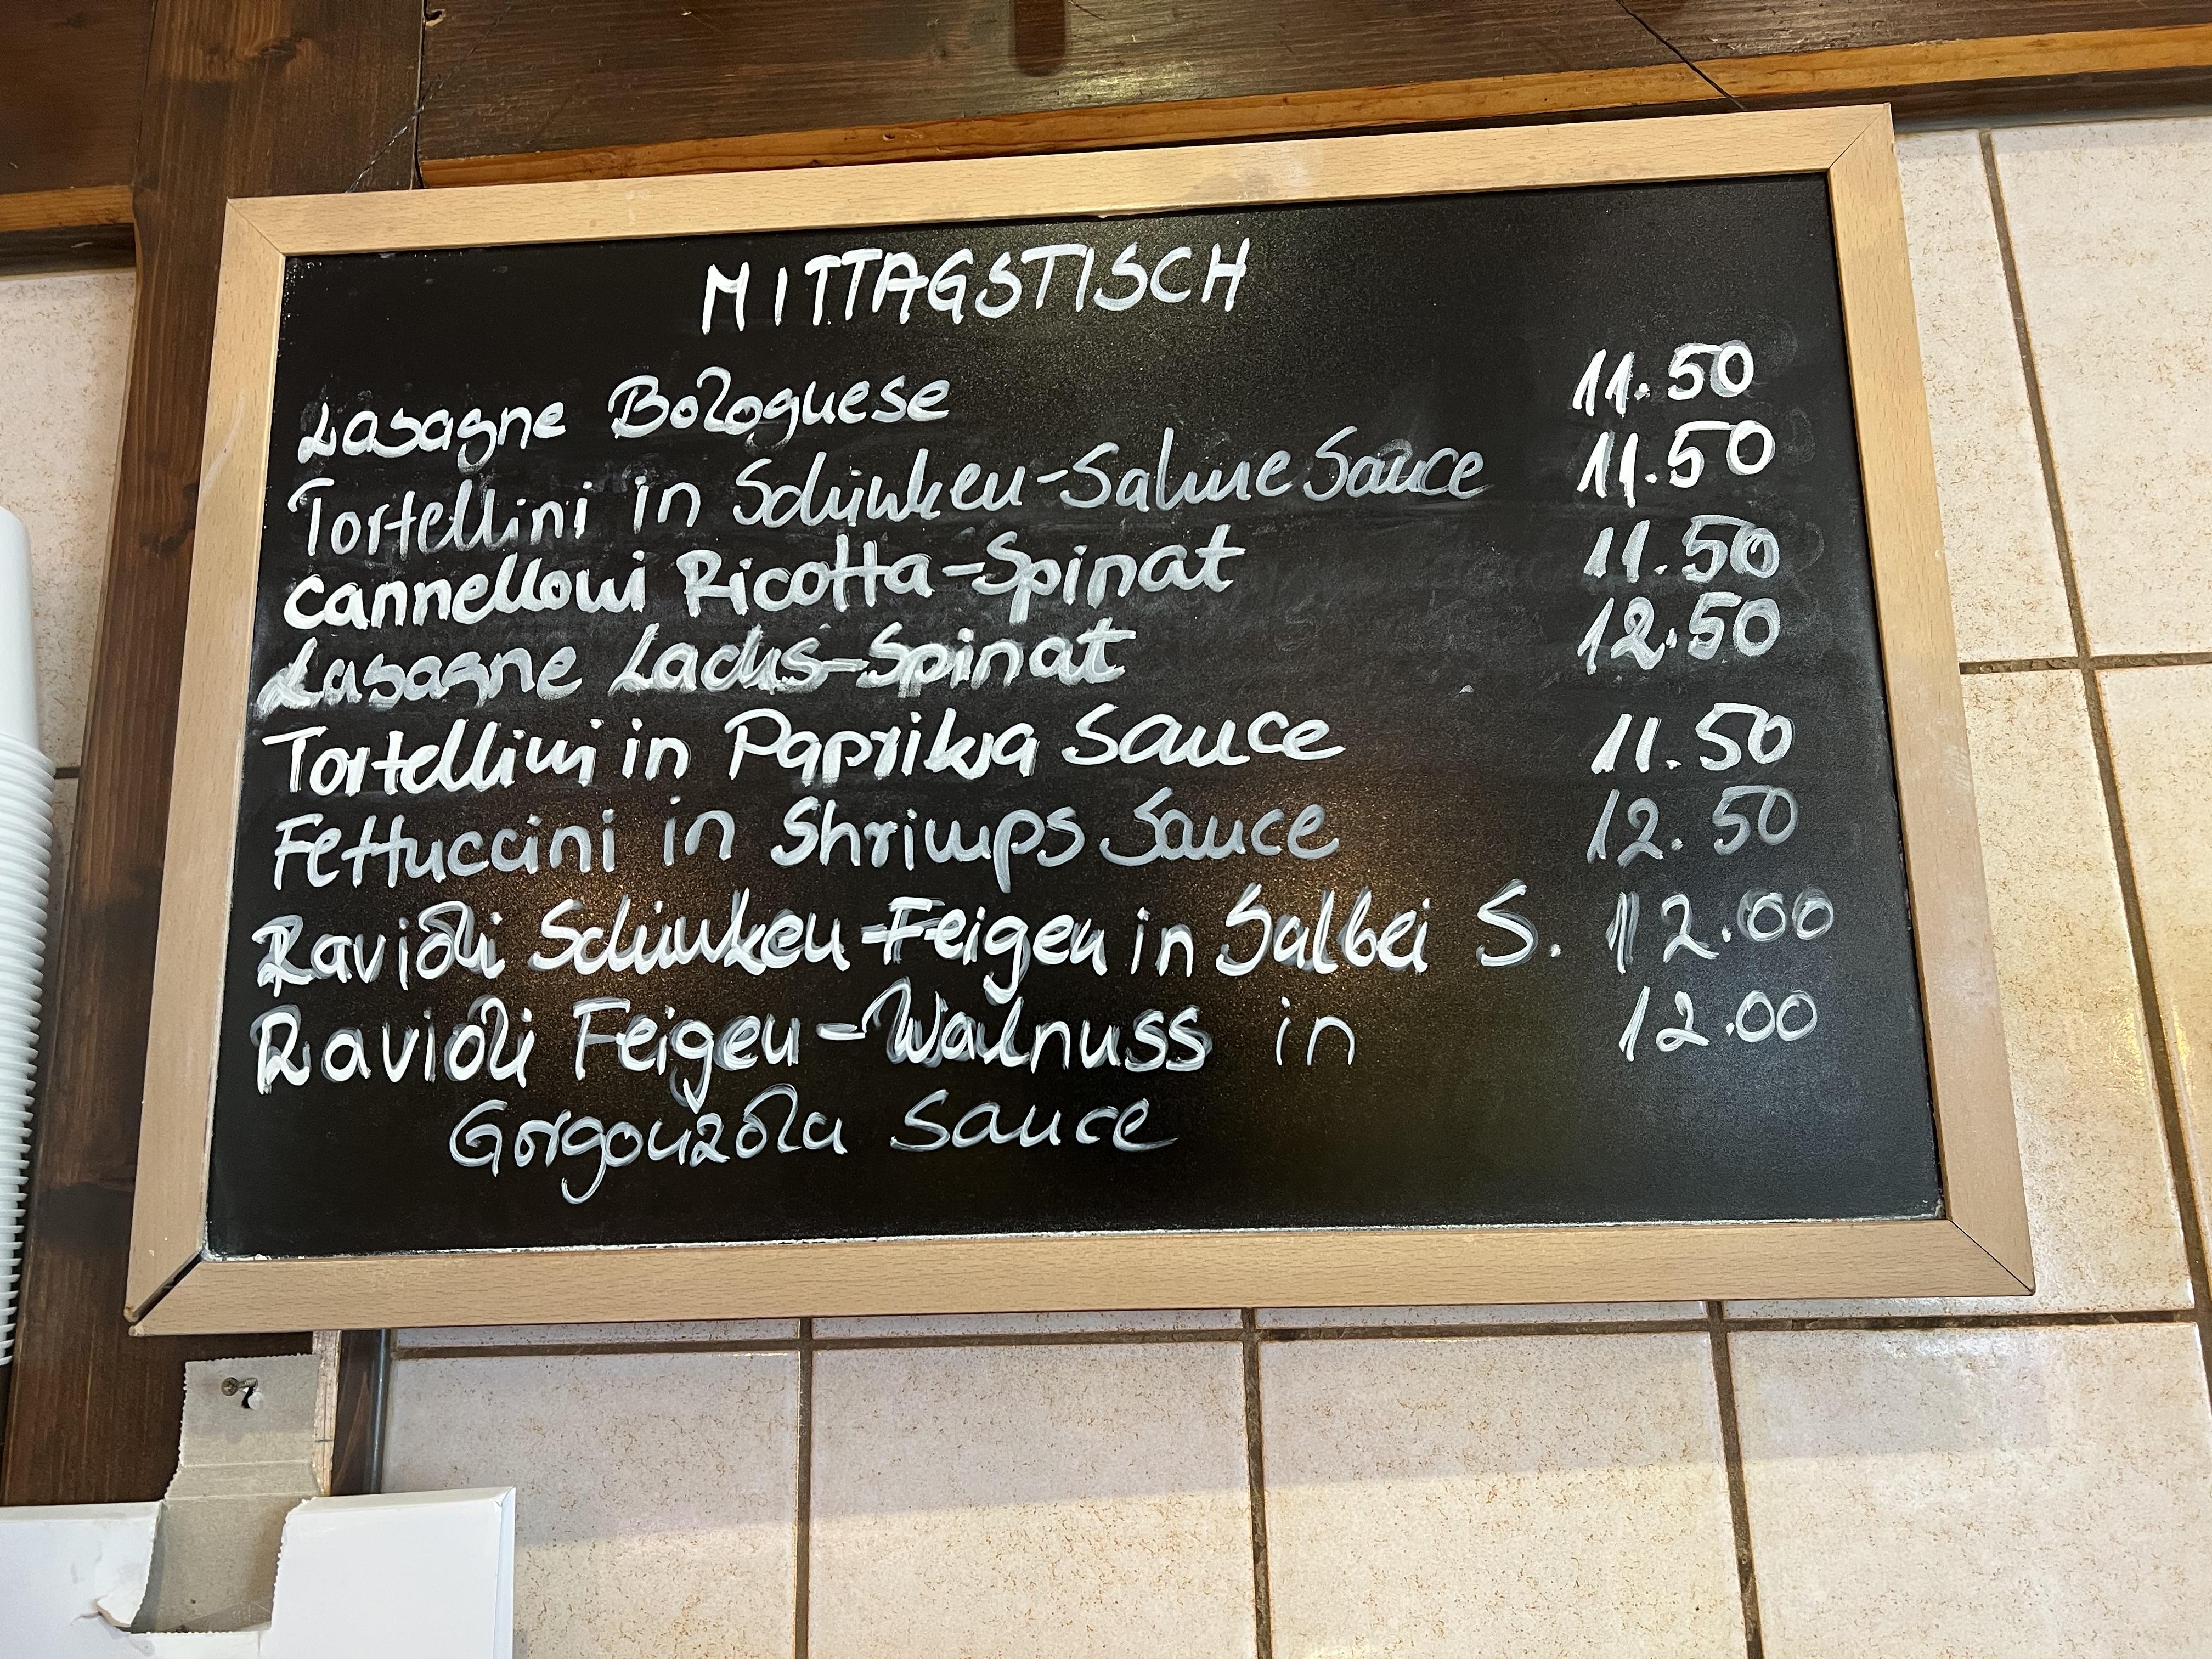 MITTAGSTISCH
Lasagne Bolognese 11.50
Tortellini in Schinken-Sahne Sauce 11.50
Cannelloni Ricotta-Spinat 11.50
Lasagne Lachs-Spinat 12.50
Tortellini in Paprika Sauce 11.50
Fettuccini in Shrimps Sauce 12.50
Ravioli Schinken-Feigen in Salbei S. 12.00
Ravioli Feigen-Walnuss in 12.00
Gorgonzola Sauce